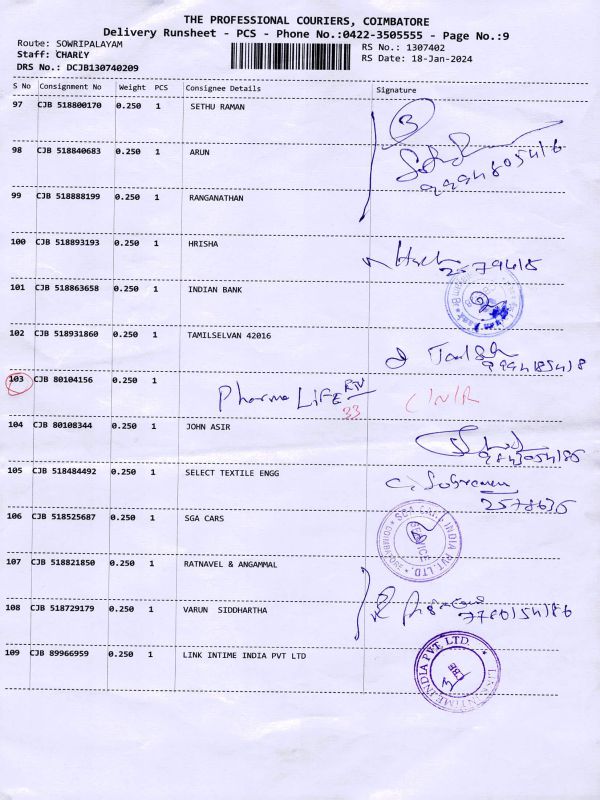 THE PROFESSIONAL COURIERS, COIMBATORE
Delivery Runsheet - PCS - Phone No.:0422-3505555 - Page No.:9
Route: SOWRIPALAYAM
RS No.: 1307402
Staff: CHARLY
RS Date: 18-Jan-2024
DRS No.: DCJB130740209
S No Consignment No Weight PCS Consignee Details Signature
97 CJB 518800170 0.250 1 SETHU RAMAN
3
98 CJB 518840683 0.250 1 ARUN
99 CJB 518888199 0.250 1 RANGANATHAN
100 CJB 518893193 0.250 1 HRISHA
101 CJB 518863658 0.250 1 INDIAN BANK
102 CJB 518931860 0.250 1 TAMILSELVAN 42016
103 CJB 80104156 0.250 1
Pharma LiFE
33
104 CJB 80108344 0.250 1 JOHN ASIR
105 CJB 518484492 0.250 1 SELECT TEXTILE ENGG
106 CJB 518525687 0.250 1 SGA CARS
SGA CARS INDIA PVT. LTD. COIMBATORE
SERVICE
107 CJB 518821850 0.250 1 RATNAVEL & ANGAMMAL
108 CJB 518729179 0.250 1 VARUN SIDDHARTHA
109 CJB 89966959 0.250 1 LINK INTIME INDIA PVT LTD
LINK INTIME INDIA PVT. LTD
CBE